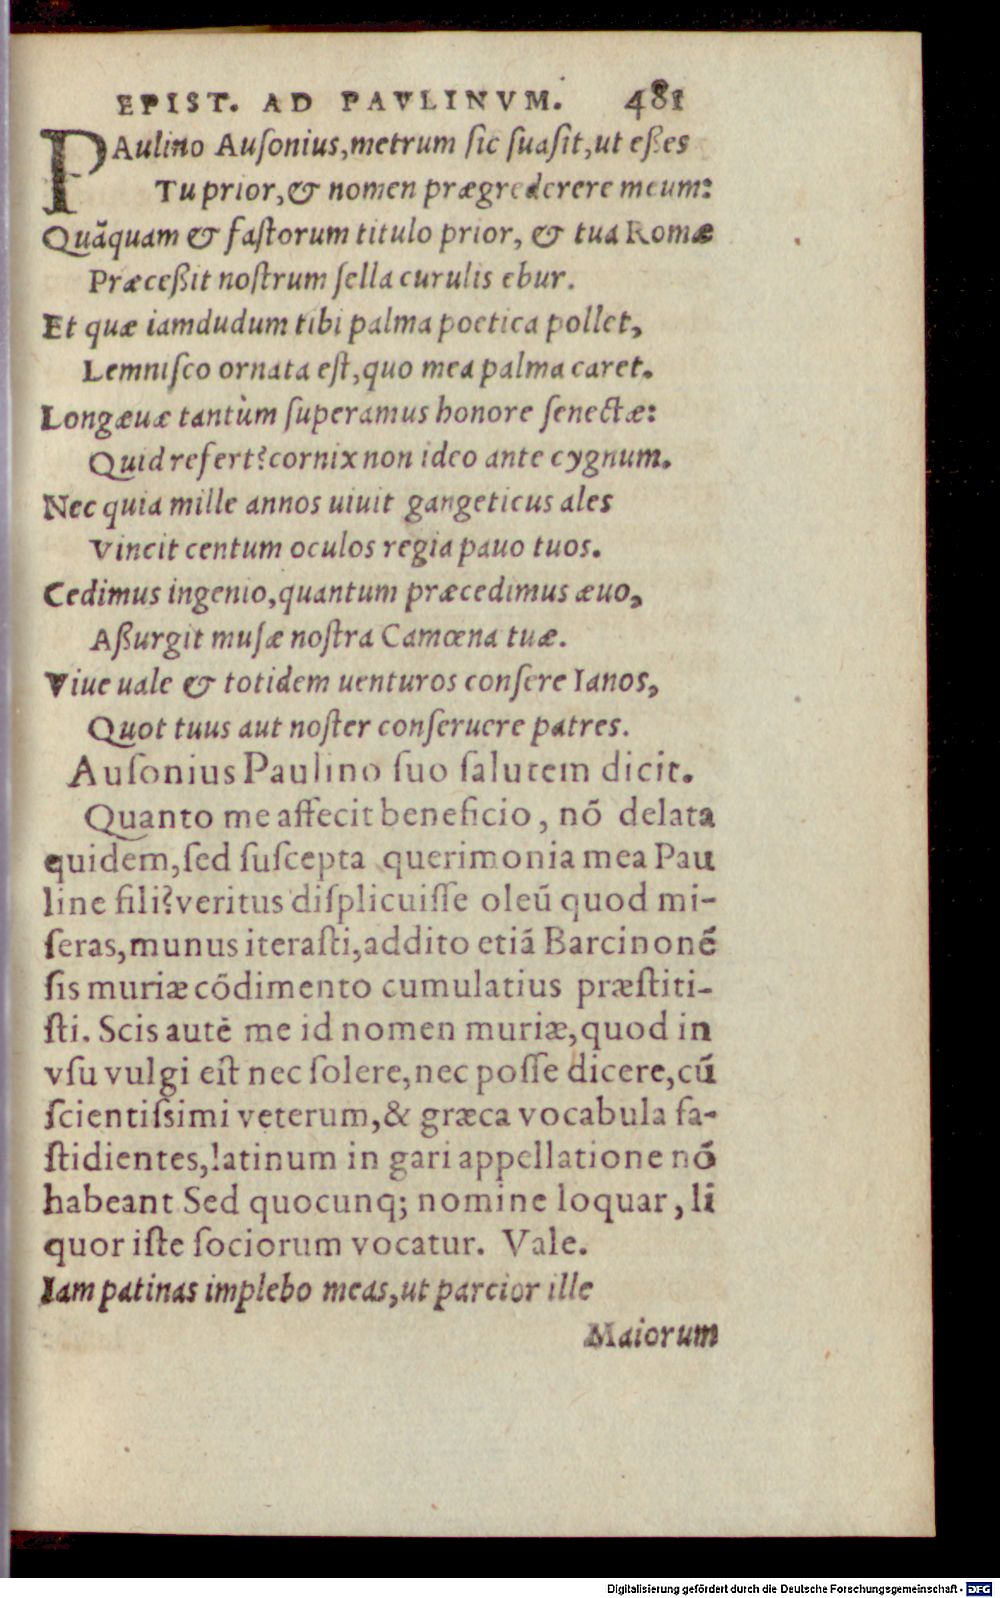 EPIST. AD PAVLINVM. 481
PAulino Auſonius,metrum ſic ſuaſit,ut eßes
Tu prior,& nomen prægrederere meum:
Quãquam & faſtorum titulo prior, & tua Romæ
Præceßit noſtrum ſella curulis ebur.
Et quæ iamdudum tibi palma poetica pollet,
Lemniſco ornata eſt,quo mea palma caret.
Longæuæ tantùm ſuperamus honore ſenectæ:
Quid refert?cornix non ideo ante cygnum.
Nec quia mille annos uiuit gangeticus ales
Vincit centum oculos regia pauo tuos.
Cedimus ingenio,quantum præcedimus æuo,
Aßurgit muſæ noſtra Camœna tuæ.
Viue uale & totidem uenturos conſere Ianos,
Quot tuus aut noſter conſeruere patres.
Auſonius Paulino ſuo ſalutem dicit.
Quanto me affecit beneficio, nõ delata
equidem,ſed ſuſcepta querimonia mea Pau
line fili?veritus diſplicuiſſe oleũ quod mi-
ſeras,munus iteraſti,addito etiã Barcinonẽ
ſis muriæ cõdimento cumulatius præſtiti-
ſti. Scis autẽ me id nomen muriæ,quod in
vſu vulgi eſt nec ſolere,nec poſſe dicere,cũ
ſcientiſsimi veterum,& græca vocabula fa-
ſtidientes,latinum in gari appellatione nõ
habeant Sed quocunq; nomine loquar, li
quor iſte ſociorum vocatur. Vale.
Iam patinas implebo meas,ut parcior ille
Maiorum
Digitalisierung gefördert durch die Deutsche Forschungsgemeinschaft - DFG